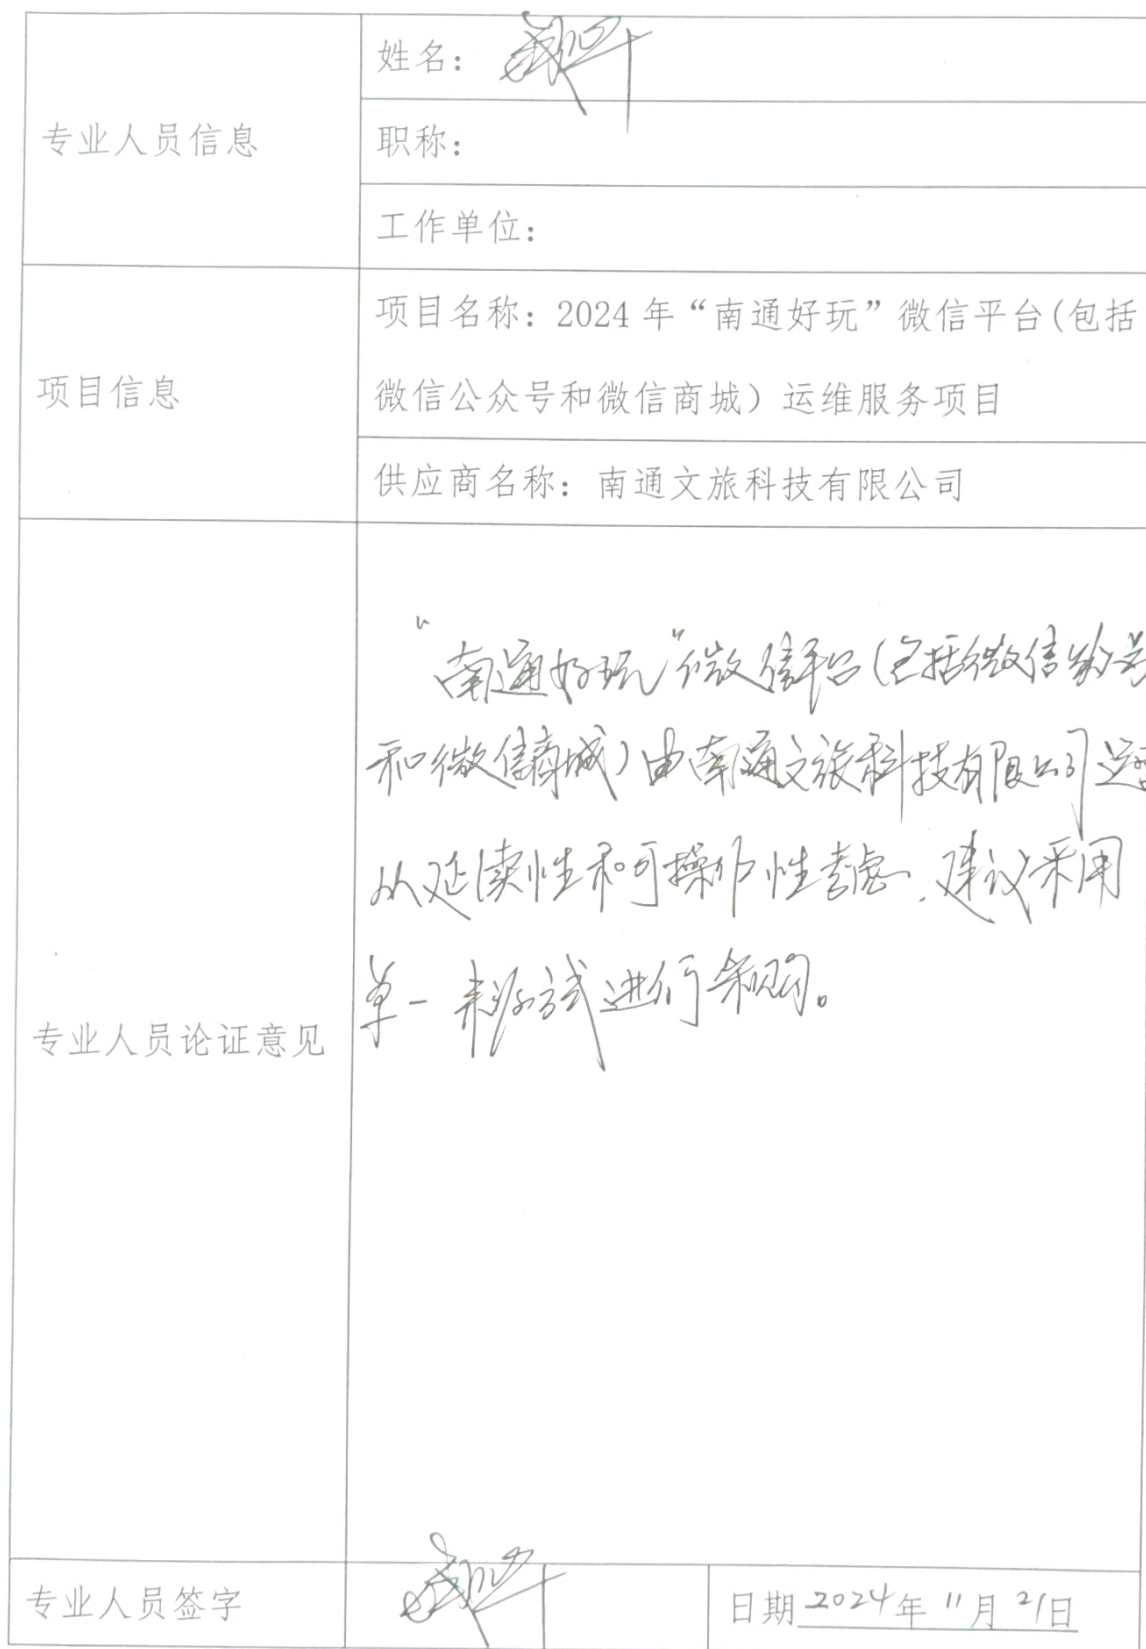 姓名：
专业人员信息
职称：
工作单位：
项目名称：2024年“南通好玩”微信平台(包括
微信公众号和微信商城）运维服务项目
项目信息
供应商名称：南通文旅科技有限公司
“南通好玩”微信平台(包括微信公众号
和微信商城)由南通文旅科技有限公司运
从延续性和可操作性考虑，建议采用
单一来源方式进行采购。
专业人员论证意见
专业人员签字
日期 2024年 11月 21日